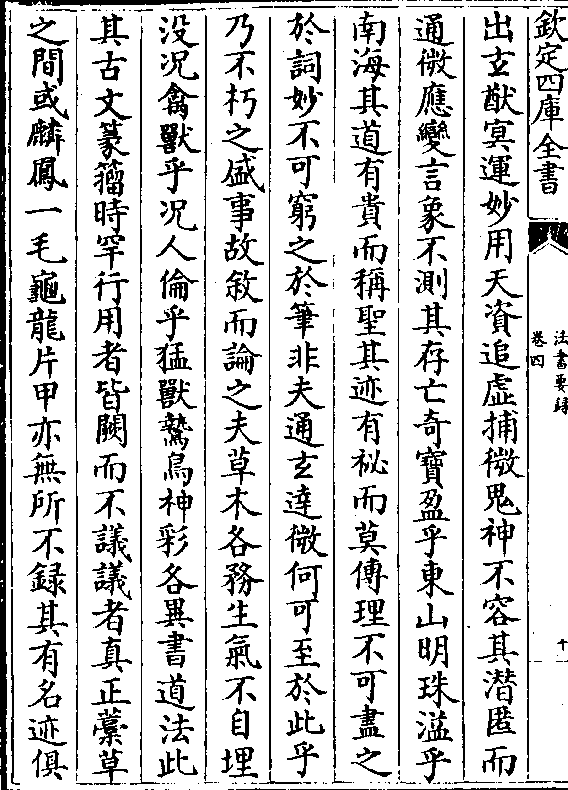 欽定四庫全書
法書要録
卷四
十
出玄猷冥運妙用天資追虛捕微鬼神不容其潛匿而
通微應變言象不測其存亡奇寶盈乎東山明珠溢乎
南海其道有貴而稱聖其迹有祕而莫傳理不可盡之
於詞妙不可窮之於筆非夫通玄達微何可至於此乎
乃不朽之盛事故敘而論之夫草木各務生氣不自埋
没况禽獸乎况人倫乎猛獸鷙鳥神彩各異書道法此
其古文篆籀時罕行用者皆闕而不議議者真正藁草
之間或麟鳳一毛龜龍片甲亦無所不録其有名迹俱